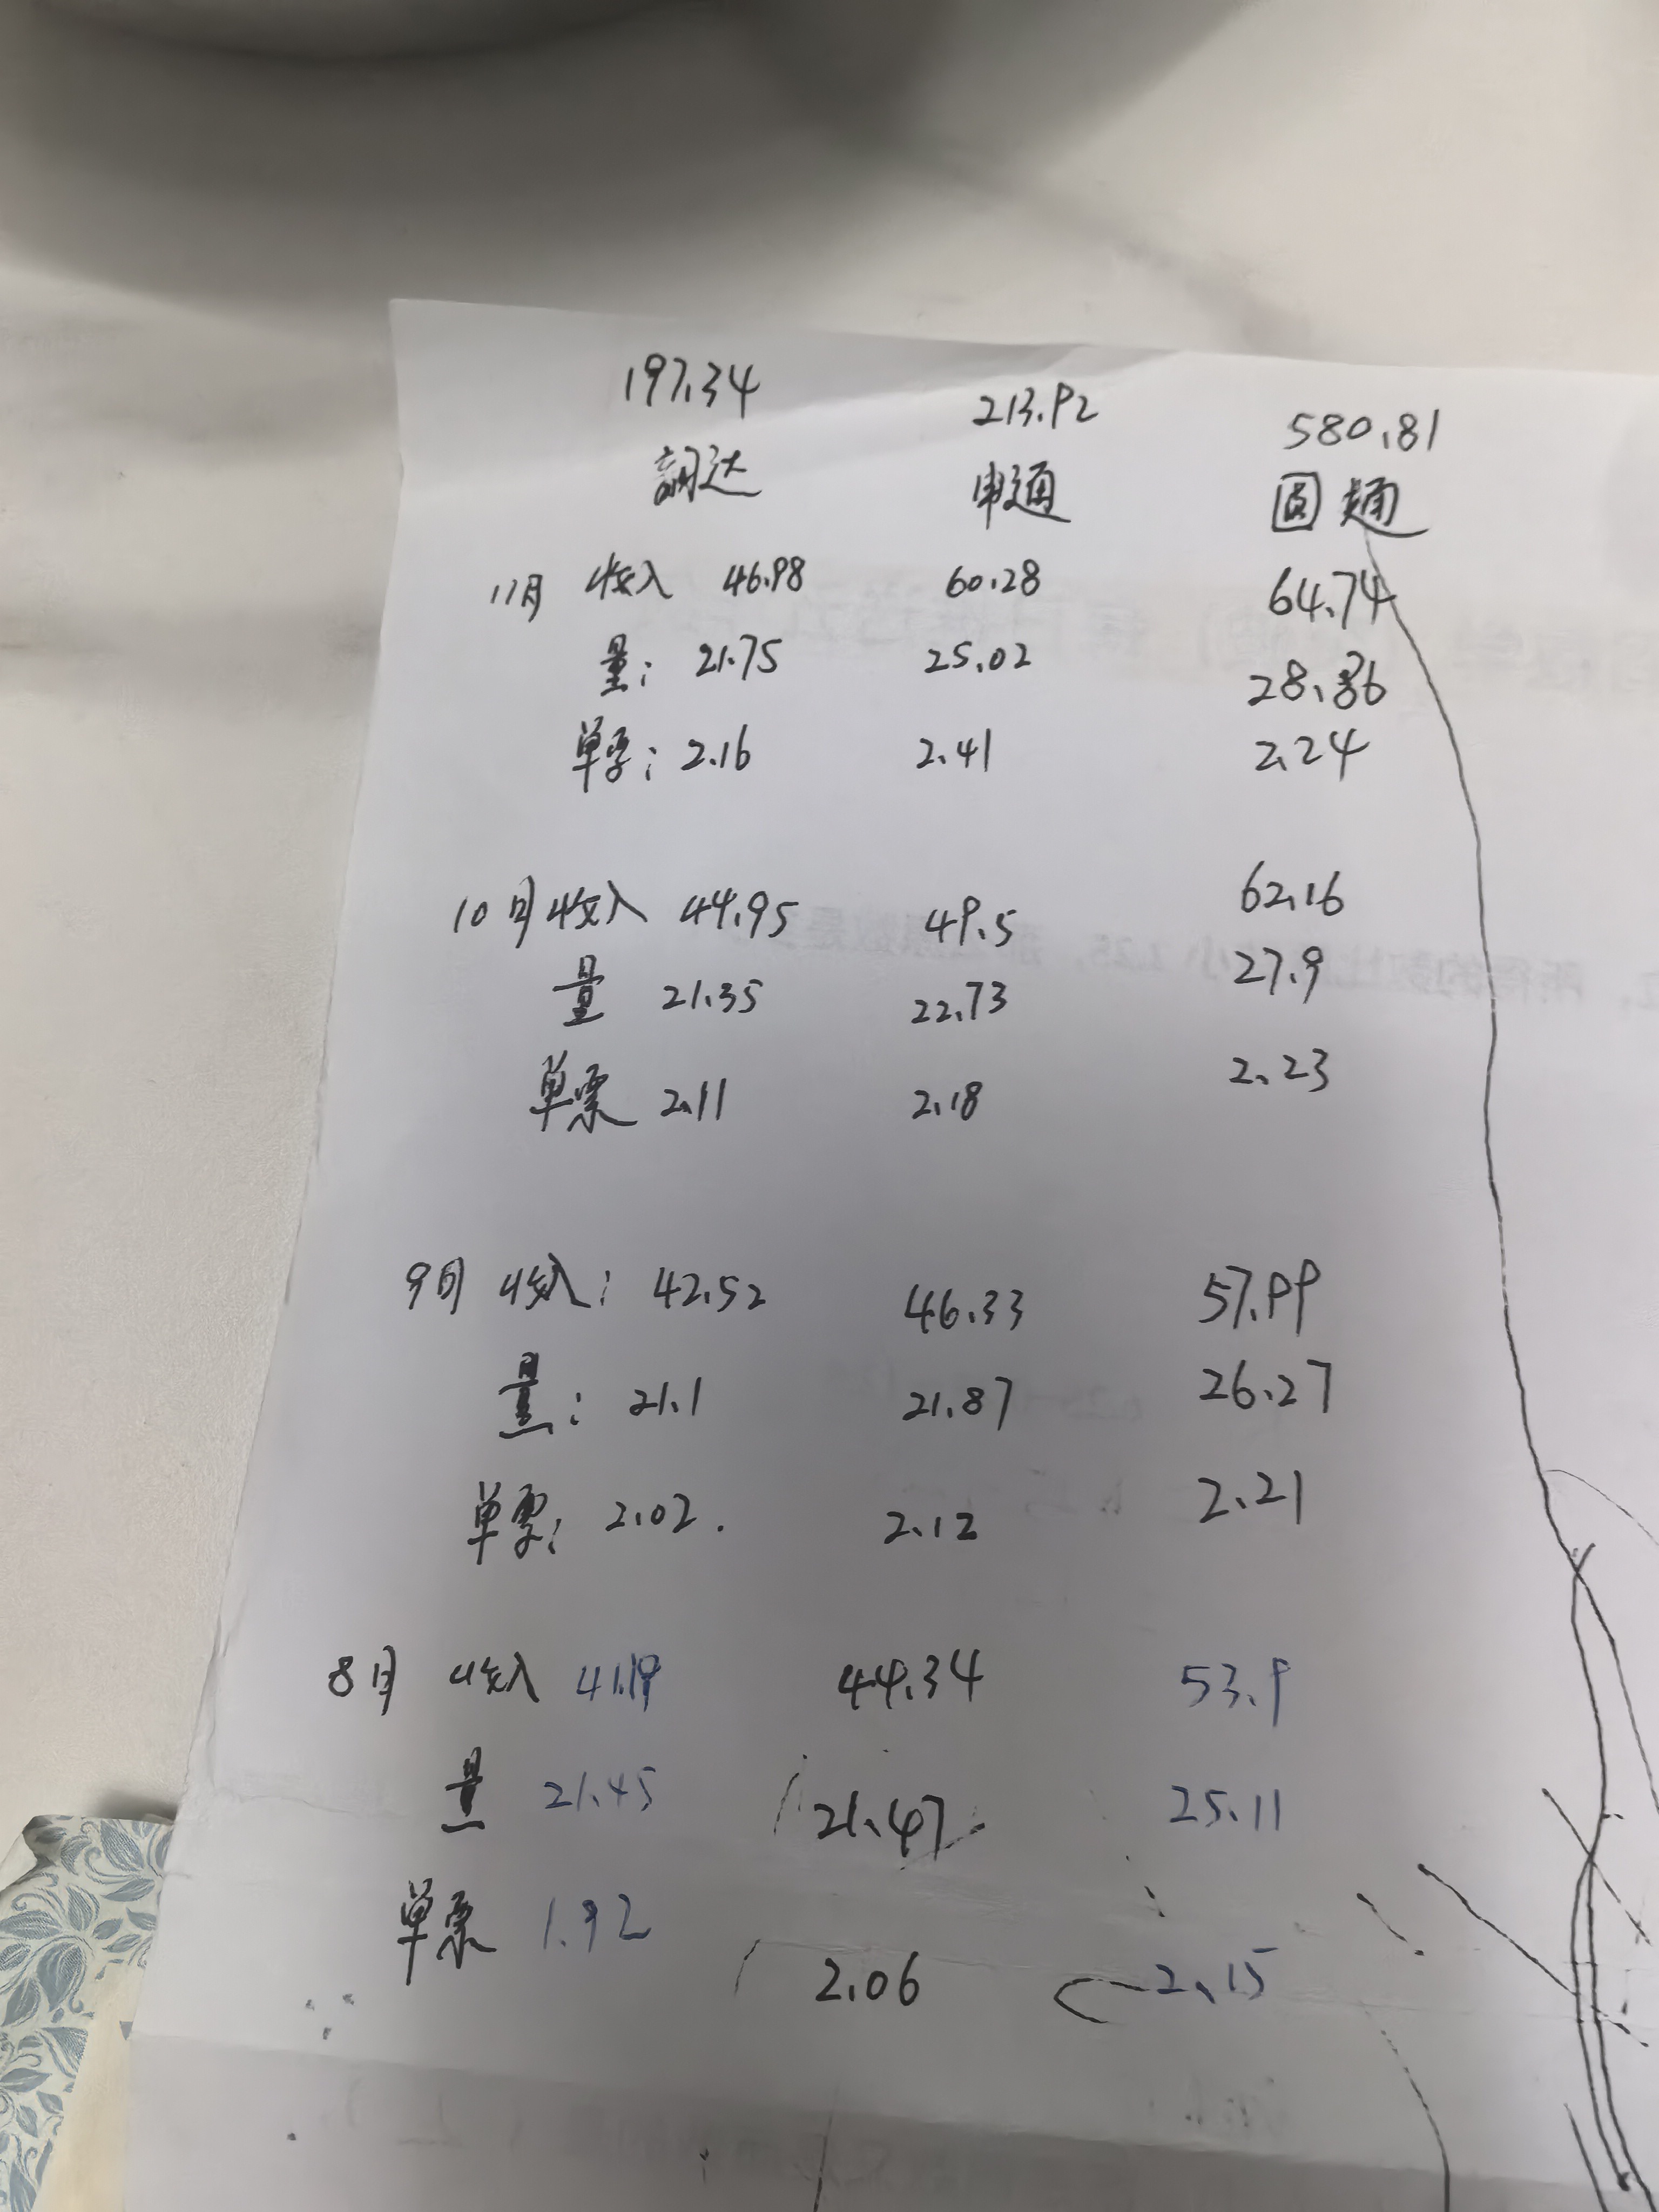 197.34 213.92 580.81
韵达 申通 圆通
11月 收入 46.98 60.28 64.74
量: 21.75 25.02 28.86
单票: 2.16 2.41 2.24
10月 收入 44.95 49.5 62.16
量 21.35 22.73 27.9
单票 2.11 2.18 2.23
9月 收入: 42.52 46.33 57.99
量: 21.1 21.87 26.27
单票: 2.02. 2.12 2.21
8月 收入 41.19 44.34 53.9
量 21.45 21.47 25.11
单票 1.92 2.06 2.15